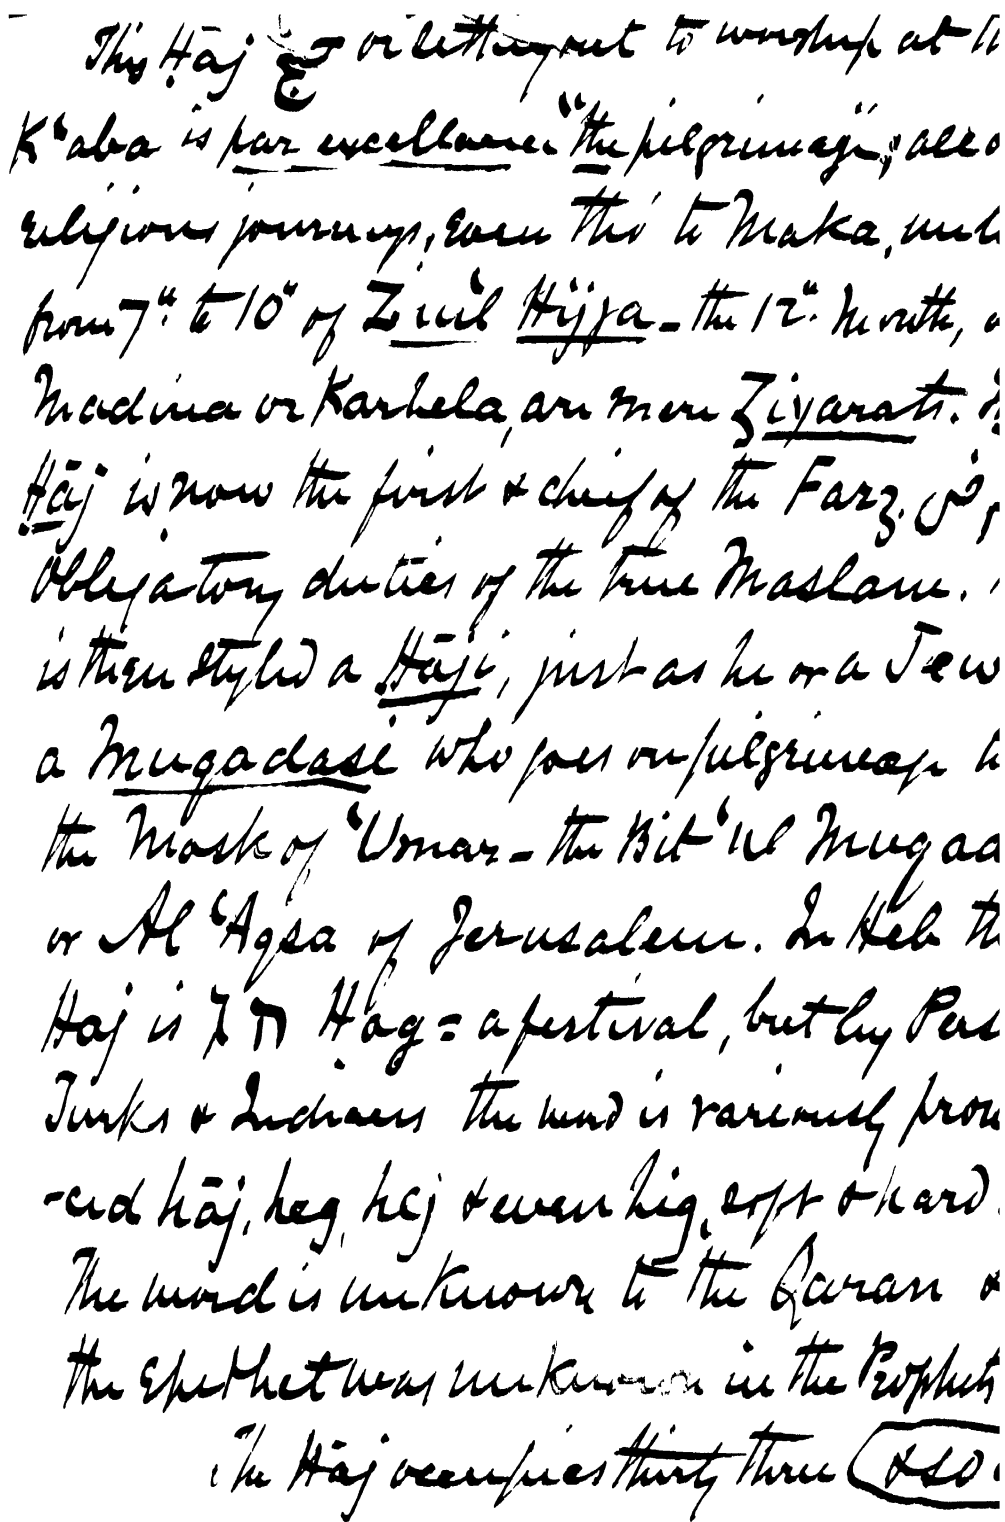 This Hāj حج or setting out to worship at t
K'aba is par excellance "the pilgrimage"; all o
religious journeys, even tho' to Maka, unl
from 7" to 10" of Zu'l Hijja - the 12". Month, o
Madina or Karbela, are mere Ziyarats.
Hāj is now the first & chief of the Farz.
Obligatory duties of the true Maslam.
is then styled a Hāji, just as he or a Jew
a Muqadasi who goes on pilgrimage t
the Mosk of 'Umar - the Bit 'ul Muqad
or Al 'Aqsa of Jerusalem. In Heb th
Haj is חג Hag = a festival, but by Pers
Turks & Indians the word is variously pron
-ced hāj, heg, hej & even hig, soft & hard.
The word is unknown to the Qaran &
the Epethet was unknown in the Prophets
The Hāj occupies thirty three & so